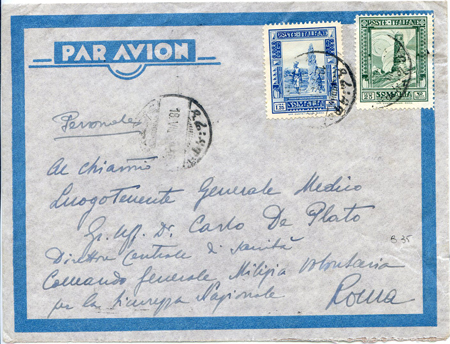 PAR AVION
POSTE·ITALIANE
SOMALIA
POSTE·ITALIANE
SOMALIA
Personale
Al chiarmo
Luogotenente Generale Medico
Gr. Uff. Dr. Carlo De Plato
Direttore Centrale di Sanità
Comando Generale Milizia Volontaria
per la Sicurezza Nazionale
Roma